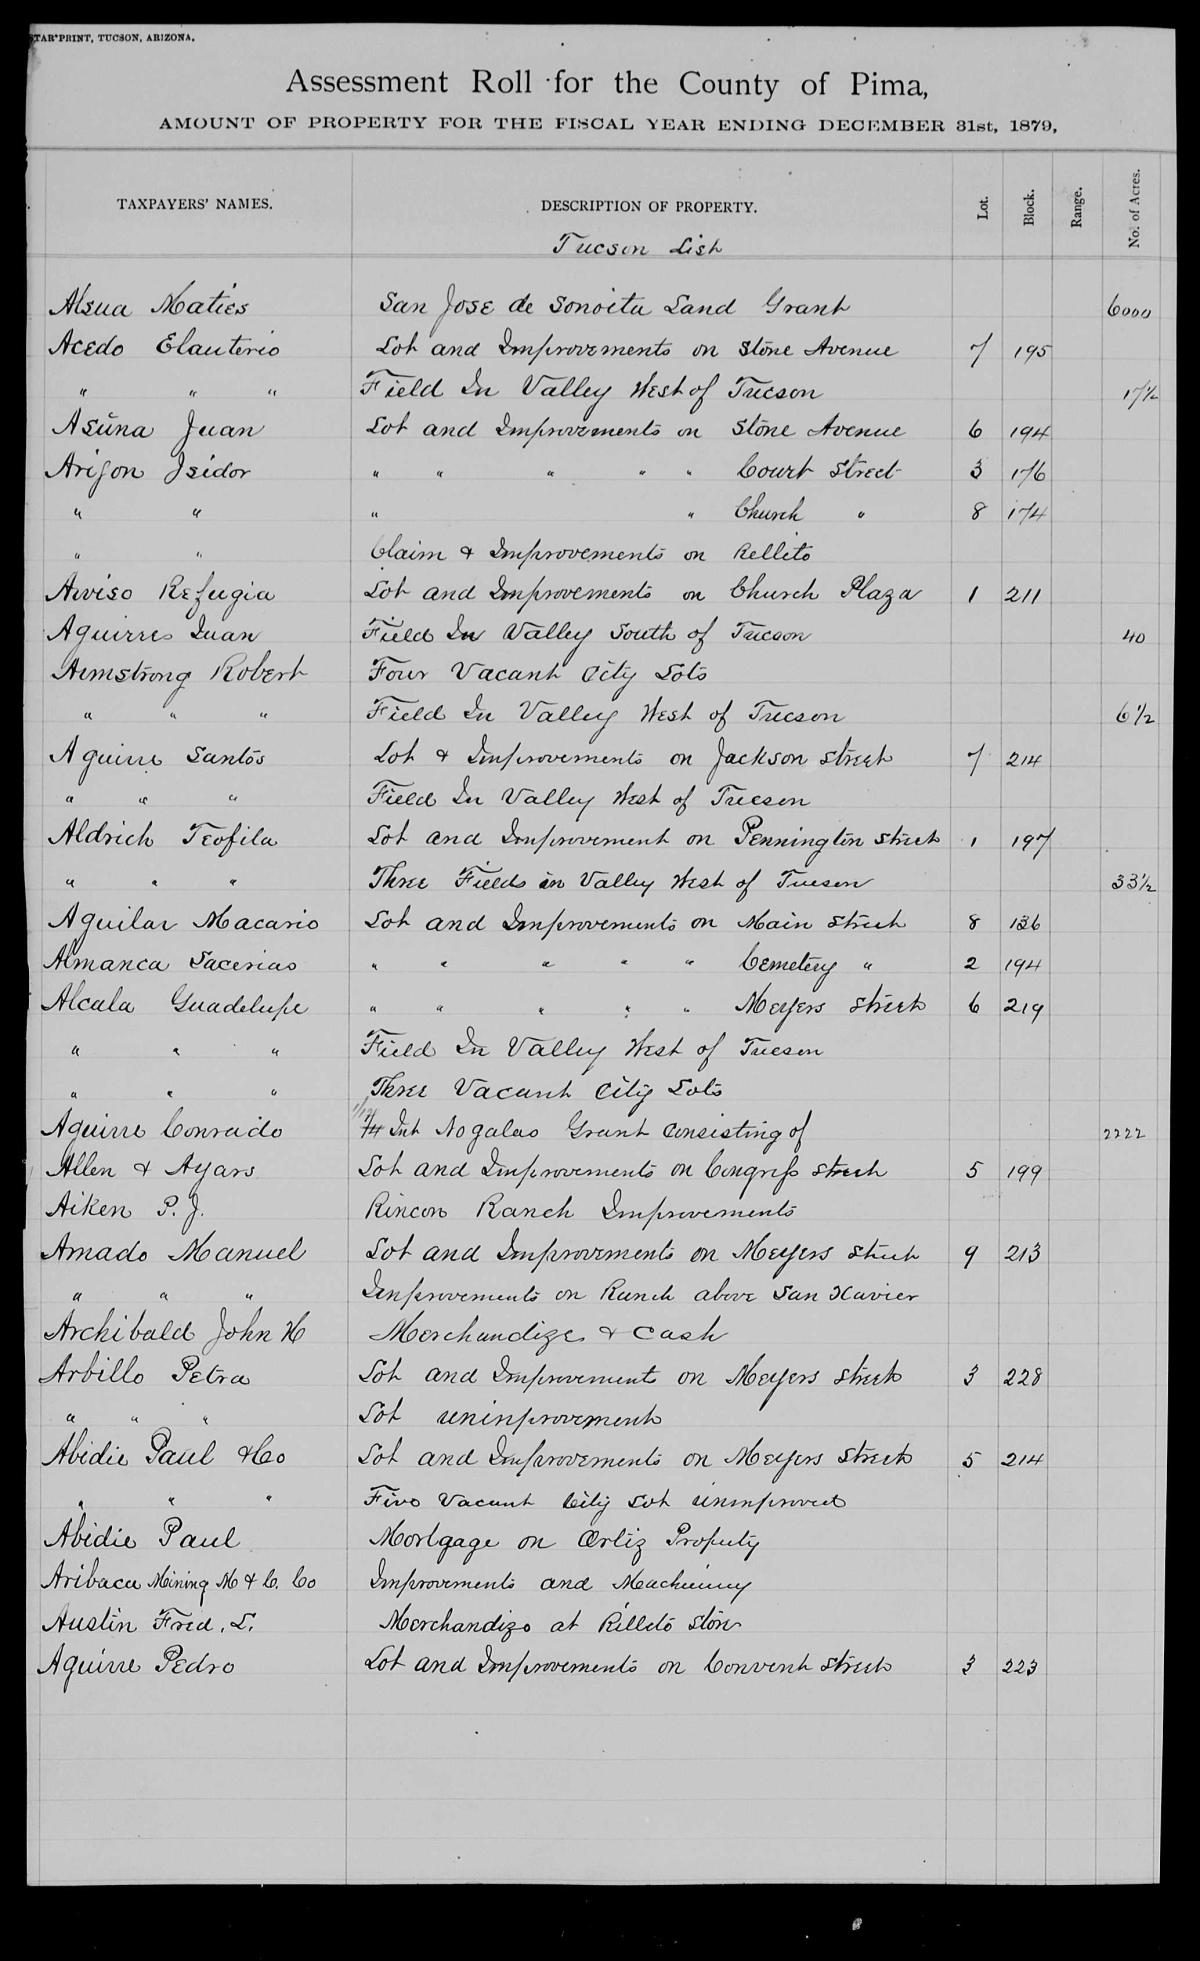 STAR PRINT, TUCSON, ARIZONA.
Assessment Roll for the County of Pima,
AMOUNT OF PROPERTY FOR THE FISCAL YEAR ENDING DECEMBER 31st, 1879,
TAXPAYERS' NAMES. DESCRIPTION OF PROPERTY. Lot. Block. Range. No. of Acres.
Tucson List
Alsua Maties San Jose de Sonoita Land Grant 6000
Acedo Elauterio Lot and Improvements on Stone Avenue 7 195
" " " Field In Valley West of Tucson 17½
Asuna Juan Lot and Improvements on Stone Avenue 6 194
Arijon Isidor " " " " " Court Street 3 176
" " " " Church " 8 174
" " Claim & Improvements on Rellito
Arviso Refugia Lot and Improvements on Church Plaza 1 211
Aguirre Juan Field In Valley South of Tucson 40
Armstrong Robert Four Vacant City Lots
" " " Field In Valley West of Tucson 6½
Aguirre Santos Lot & Improvements on Jackson Street 7 214
" " " Field In Valley West of Tucson
Aldrich Teofila Lot and Improvement on Pennington Street 1 197
" " " Three Fields in Valley West of Tucson 33½
Aguilar Macario Lot and Improvements on Main Street 8 136
Almanca Sacerias " " " " " Cemetery " 2 194
Alcala Guadelupe " " " " " Meyers Street 6 219
" " " Field In Valley West of Tucson
" " " Three Vacant City Lots
Aguirre Conrado Int Nogalas Grant Consisting of 2222
Allen & Ayars Lot and Improvements on Congress Street 5 199
Aiken P. J. Rincon Ranch Improvements
Amado Manuel Lot and Improvements on Meyers Street 9 213
" " " Improvements on Ranch above San Xavier
Archibald John H Merchandize & Cash
Arbillo Petra Lot and Improvements on Meyers Street 3 228
" " " Lot unimprovement
Abidie Paul & Co Lot and Improvements on Meyers Street 5 214
" " " Five Vacant City Lot unimproved
Abidie Paul Mortgage on Ortiz Property
Aribaca Mining M & C. Co Improvements and Machinery
Austin Fred. L. Merchandize at Rilleto Store
Aguirre Pedro Lot and Improvements on Convent Street 3 223